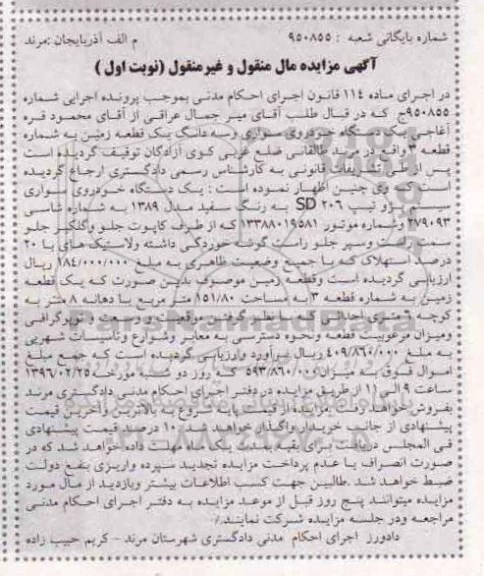 شماره بایگانی شعبه : ۹۵۰۸۵۵ م الف آذربایجان :مرند
آگهی مزایده مال منقول و غیرمنقول (نوبت اول )
در اجرای ماده ۱۱۴ قانون اجرای احکام مدنی بموجب پرونده اجرایی شماره
۹۵۰۸۵۵ج که در قبال طلب آقای میر جمال عراقی از آقای محمود قره
آغاجی یک دستگاه خودروی سواری وسه دانگ یک قطعه زمین به شماره
قطعه ۳ واقع در مرند طالقانی ضلع غربی کوی آزادگان توقیف گردیده است
پس از طی تشریفات قانونی به کارشناس رسمی دادگستری ارجاع گردیده
است که وی چنین اظهار نموده است : یک دستگاه خودروی سواری
سیستم پژو تیپ ۲۰۶ SD به رنگ سفید مدل ۱۳۸۹ به شماره شاسی
۲۷۹۰۹۳ وشماره موتور ۱۳۳۸۸۰۱۹۵۸۱ که از طرف کاپوت جلو وگلگیر جلو
سمت راست وسپر جلو راست گوشه خوردگی داشته ولاستیک های با ۲۰
درصد استهلاک که با جمیع وضعیت ظاهری به مبلغ ۱۸۴/۰۰۰/۰۰۰ ریال
ارزیابی گردیده است وقطعه زمین موصوف بدین صورت که یک قطعه
زمین به شماره قطعه ۳ به مساحت ۱۵۱/۸۰ متر مربع با دهانه ۸ متر به
کوچه ۶ متری احداثی که با نظر گرفتن موقعیت و وسعت ، توپوگرافی
ومیزان مرغوبیت قطعه ونحوه دسترسی به معابر وشوارع وتأسیسات شهری
به مبلغ ۴۰۹/۸۶۰/۰۰۰ ریال برآورد وارزیابی گردیده است که جمع مبلغ
اموال فوق به میزان ۵۹۳/۸۶۰/۰۰۰ که روز دو شنبه مورخه ۱۳۹۶/۰۲/۲۵
ساعت ۹ الی ۱۱ از طریق مزایده در دفتر اجرای احکام مدنی دادگستری مرند
بفروش خواهد رفت مزایده از قیمت پایه شروع به بالاترین وآخرین قیمت
پیشنهادی از جانب خریدار واگذار خواهد شد ۱۰ درصد قیمت پیشنهادی
فی المجلس دریافت برای بقیه بمدت یک ماه مهلت داده خواهد شد که در
صورت انصراف یا عدم پرداخت مزایده تجدید سپرده واریزی بنفع دولت
ضبط خواهد شد .طالبین جهت کسب اطلاعات بیشتر وبازدید از مال مورد
مزایده میتوانند پنج روز قبل از موعد مزایده به دفتر اجرای احکام مدنی
مراجعه ودر جلسه مزایده شرکت نمایند./
دادورز اجرای احکام مدنی دادگستری شهرستان مرند - کریم حبیب زاده